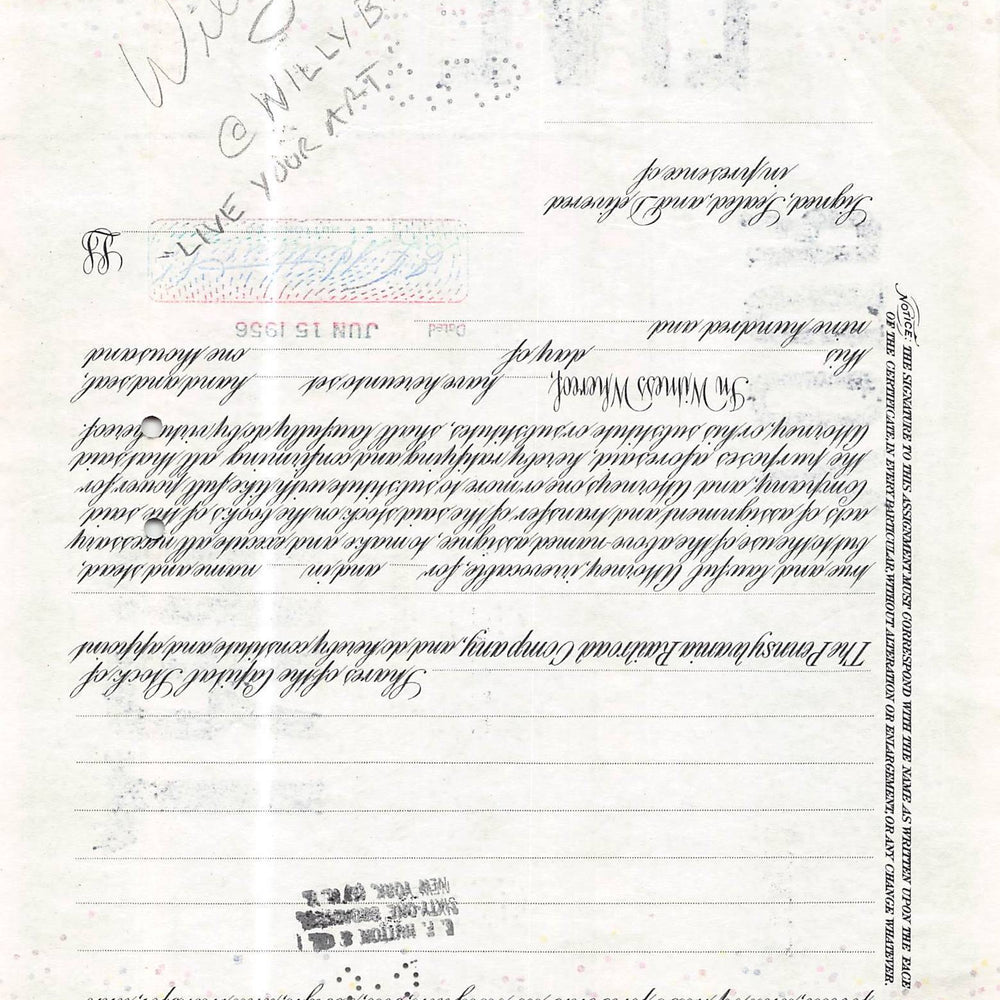 @ WILLY B
"LIVE YOUR ART"
E. F. HUTTON & CO.
SIXTY-ONE BROADWAY
NEW YORK, N. Y.
Shares of the Capital Stock of
The Pennsylvania Railroad Company, and do hereby constitute and appoint
true and lawful Attorney, irrevocable, for and in name and stead,
but to the use of the above-named assignee, to make and execute all necessary
acts of assignment and transfer of the said stock on the books of the said
Company, and Attorneys one or more to substitute with like full power for
the purposes aforesaid, hereby ratifying and confirming all that said
Attorney, or his substitute or substitutes, shall lawfully do by virtue hereof.
In Witness Whereof, have hereunto set hand and seal,
this day of one thousand
nine hundred and
Dated JUN 15 1956
Signed, Sealed, and Delivered
in presence of
NOTICE: THE SIGNATURE TO THIS ASSIGNMENT MUST CORRESPOND WITH THE NAME AS WRITTEN UPON THE FACE
OF THE CERTIFICATE, IN EVERY PARTICULAR, WITHOUT ALTERATION OR ENLARGEMENT, OR ANY CHANGE WHATEVER.